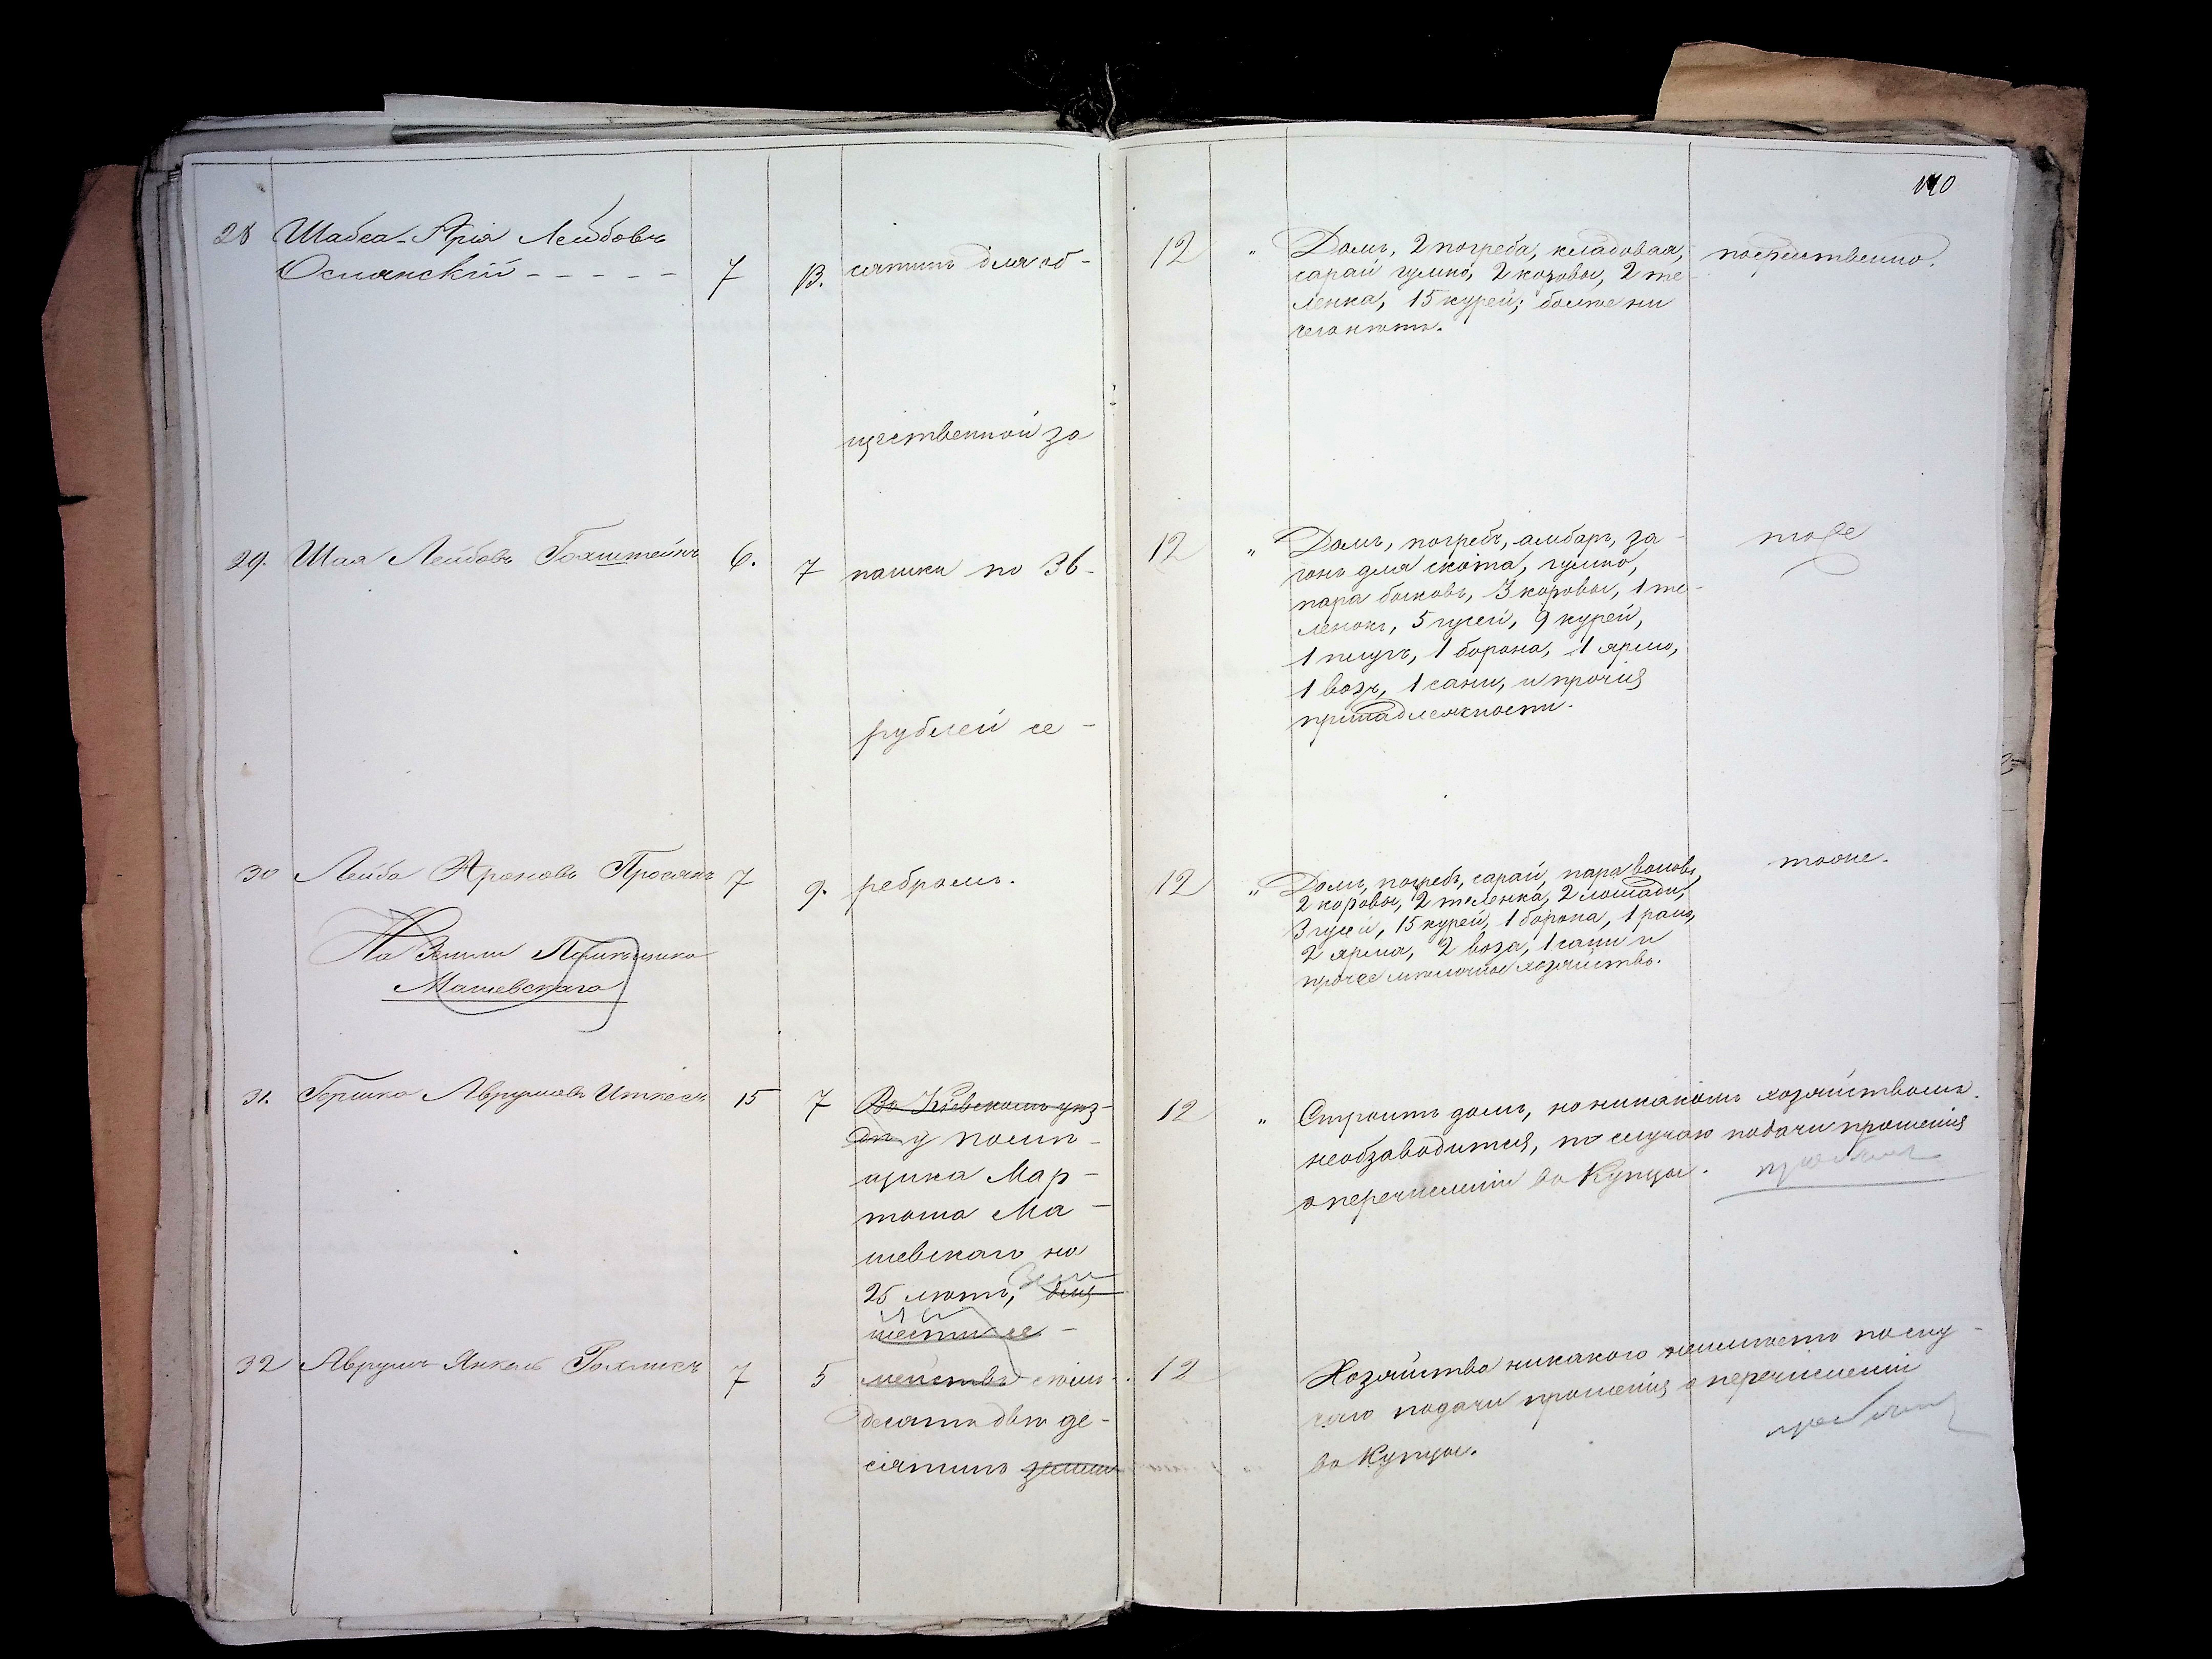 140
28 Шабса-Арія Лейбовъ
Ослянскій - - - - - 7 13. сятинъ для об-
щественной за
29. Шая Лейбовъ Гохштейнъ 6. 7 пашки по 36-
рублей се-
30 Лейба Ароновъ Просякъ 7 9. ребромъ.
На Земли Помѣщика
Машевскаго
31. Гершко Аврумовъ Иткесъ 15 7 Въ Кіевскомъ уѣз-
дѣ у помѣ-
щика Мар-
тына Ма-
шевскаго на
25 лѣтъ, для
шести се-
32 Аврумъ Янкель 7 5 мействъ семь-
десятъ двѣ де-
сятинъ земли
12 " Домъ, 2 погреба, кладовая, посредственно.
сарай гумно, 2 коровы, 2 те-
ленка, 15 курей; болѣе ни
чего нѣтъ.
12 " Домъ, погребъ, амбаръ, за- тоже
гонъ для скота, гумно,
пара быковъ, 3 коровы, 1 те-
ленокъ, 5 гусей, 9 курей,
1 плугъ, 1 борона, 1 ярмо,
1 возъ, 1 сани, и прочія
принадлежности.
12 " Домъ, погребъ, сарай, пара воловъ, тоже.
2 коровы, 2 теленка, 2 лошади,
3 гусей, 15 курей, 1 борона, 1 рало,
2 ярма, 2 воза, 1 сани и
прочее мѣлочное хозяйство.
12 " Строитъ домъ, но никакимъ хозяйствомъ
необзаводится, по случаю подачи прошенія
о перечисленіи въ Купцы.
12 Хозяйства никакого неимѣетъ по слу-
чаю подачи прошенія о перечисленіи
въ Купцы.